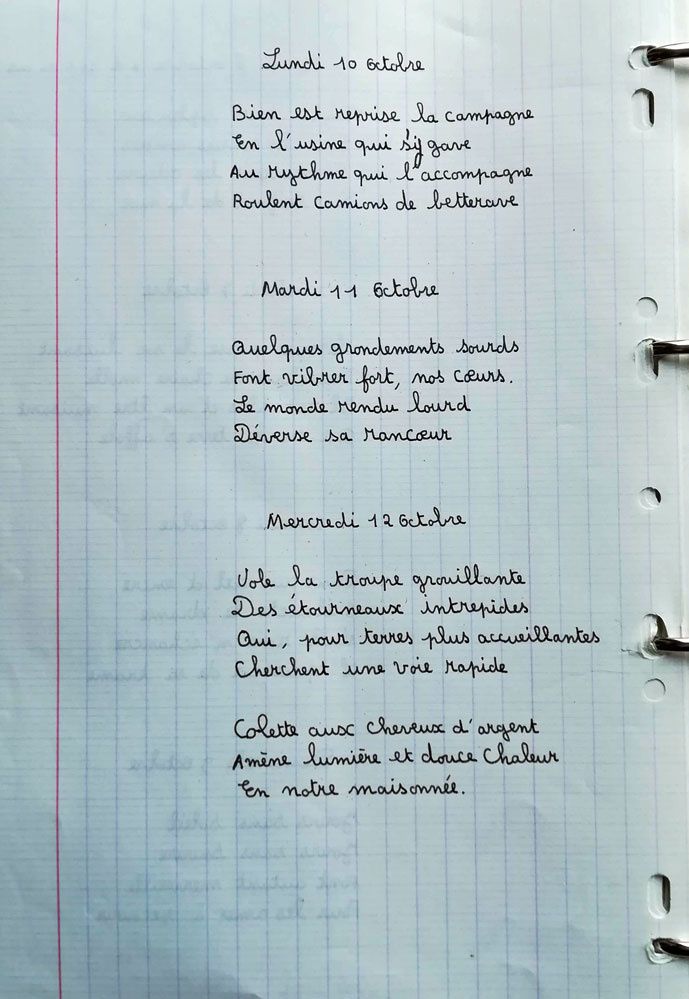 Lundi 10 Octobre
Bien est reprise la campagne
En l'usine qui s'y gave
Au rythme qui l'accompagne
Roulent camions de betterave
Mardi 11 Octobre
Quelques grondements sourds
Font vibrer fort, nos cœurs.
Le monde rendu lourd
Déverse sa rancœur
Mercredi 12 Octobre
Vole la troupe grouillante
Des étourneaux intrepides
Qui, pour terres plus accueillantes
Cherchent une voie rapide
Colette aux cheveux d'argent
Amène lumière et douce chaleur
En notre maisonnée.